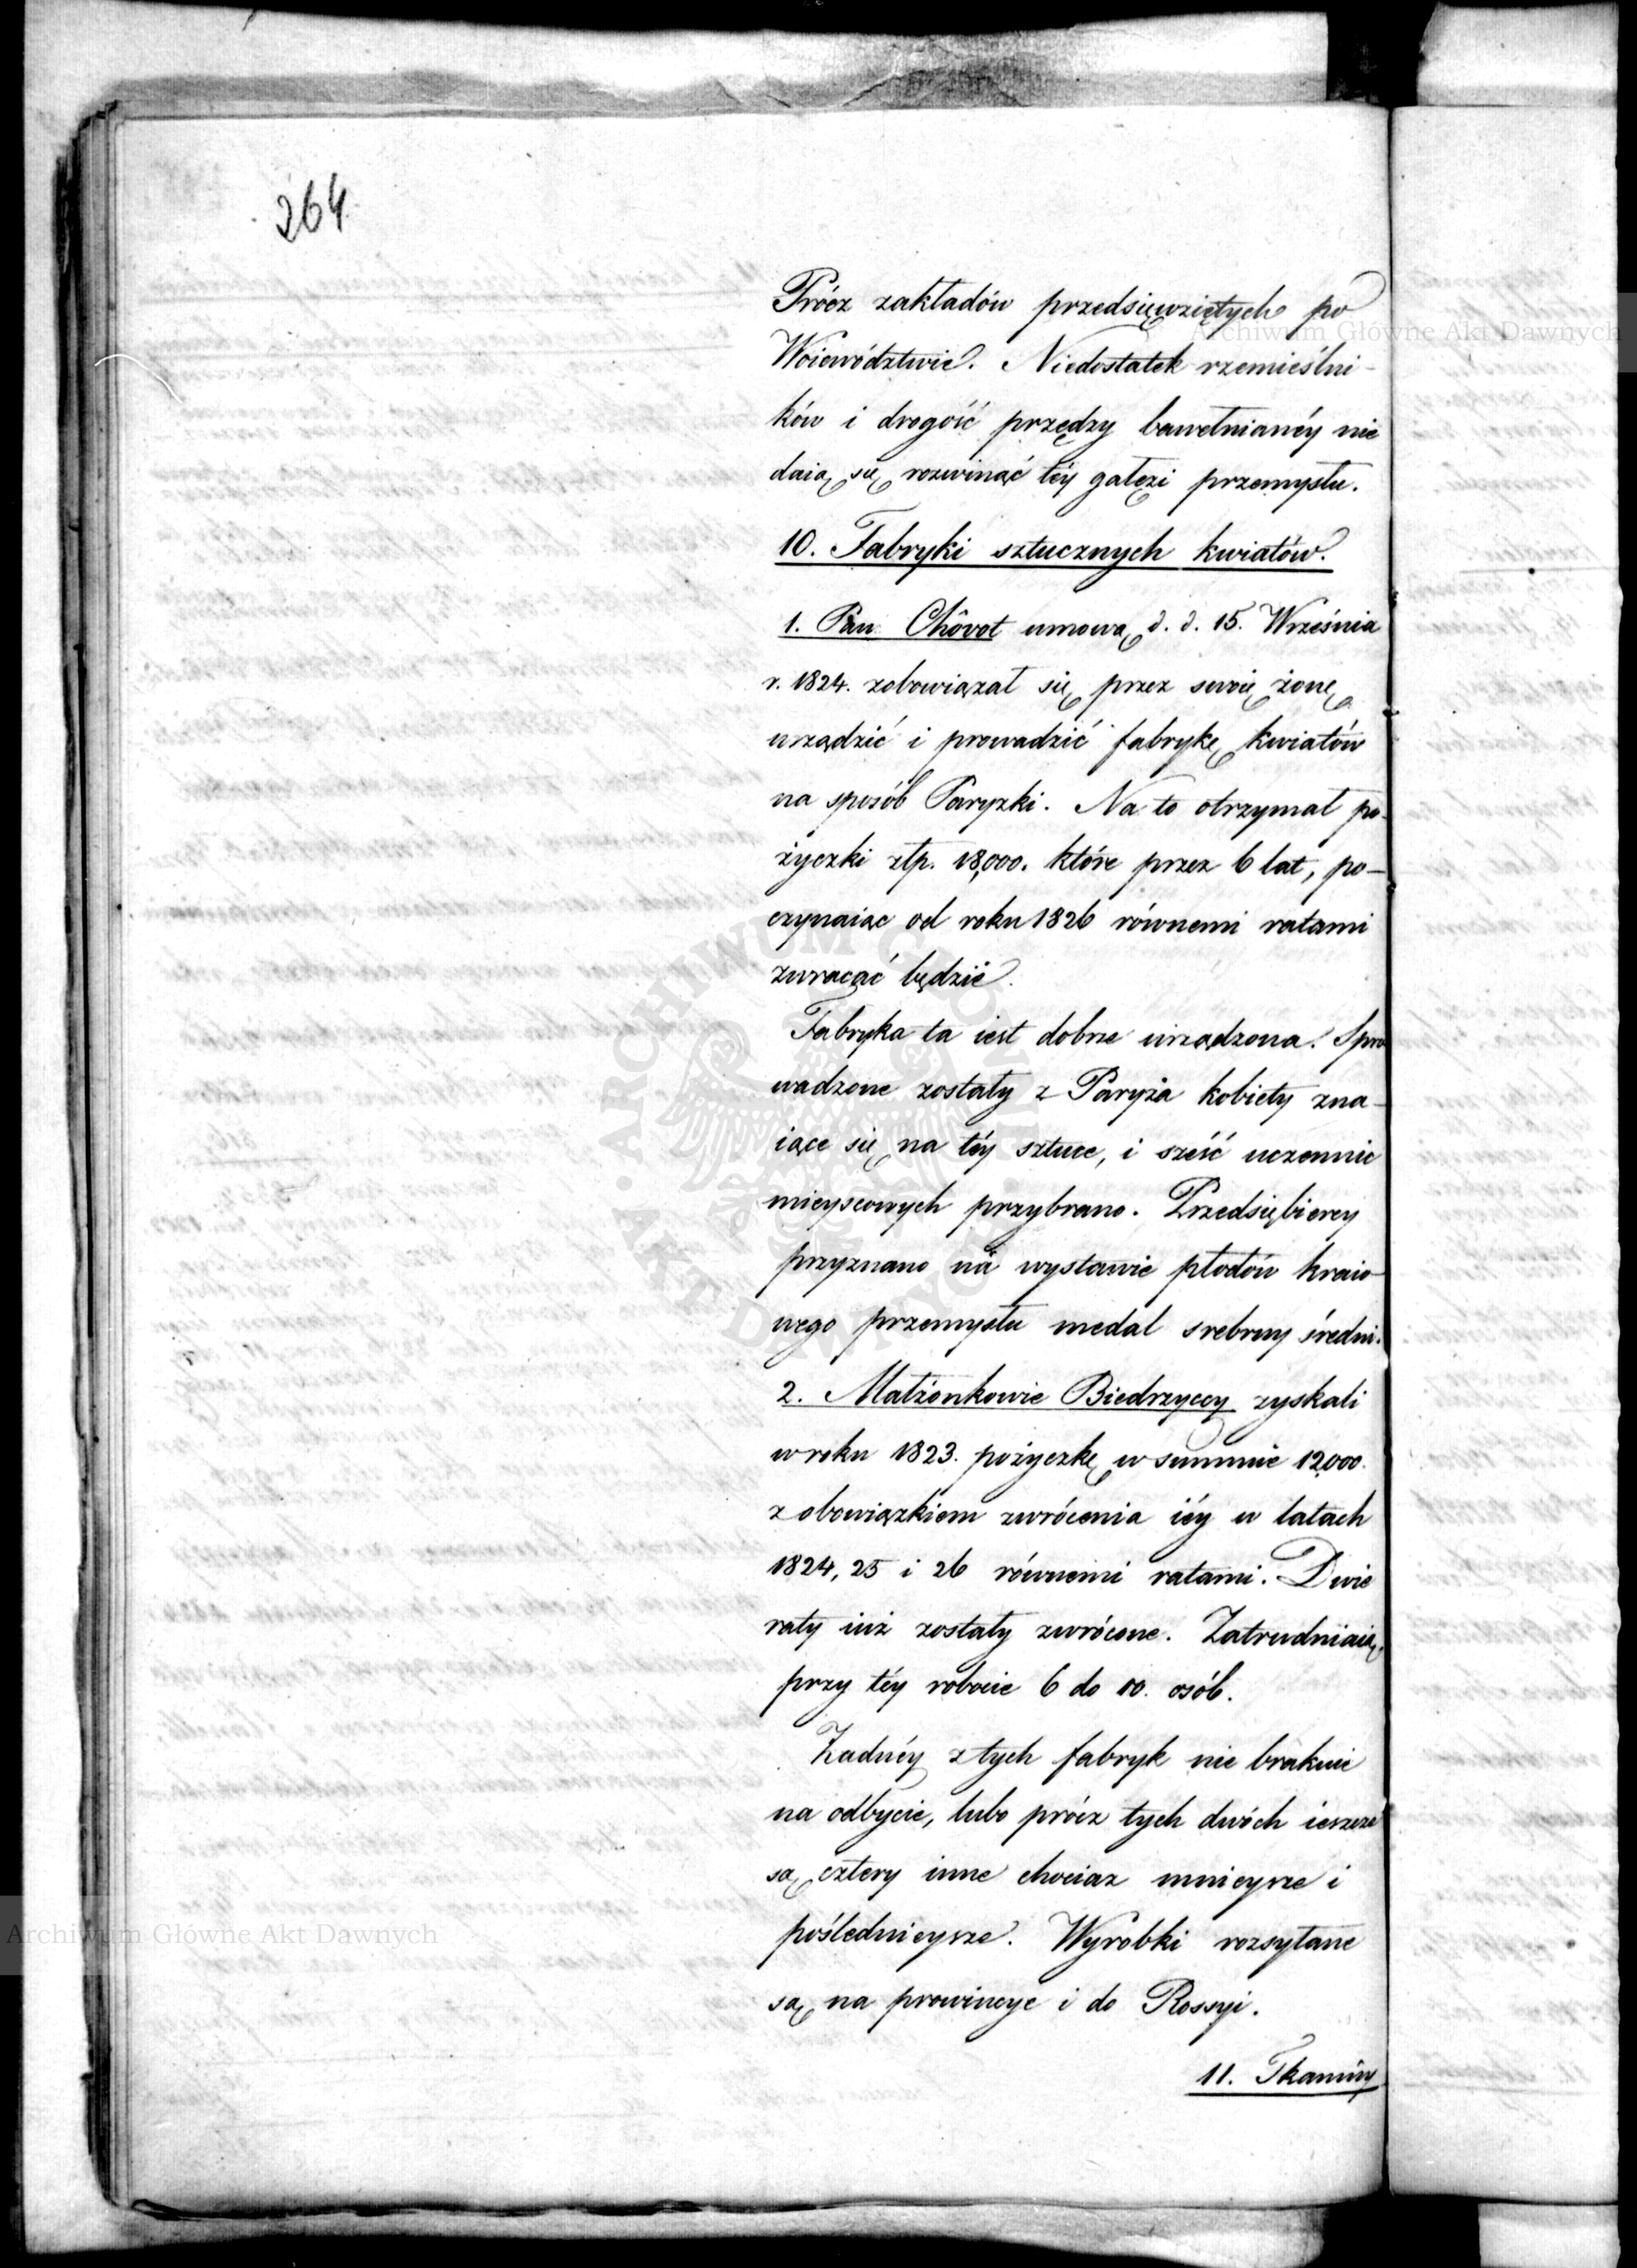 264
Prócz zakładów przedsięwziętych po
Woiewództwie. Niedostatek rzemieślni-
ków i drogość przędzy bawełnianéy nie
daią się rozwinąć téy gałęzi przemysłu.
10. Fabryki sztucznych kwiatów.
1. Pan Chôvot umową d. d. 15. Września
r. 1824. zobowiązał się przez swoię żonę
urządzić i prowadzić fabrykę kwiatów
na sposób Paryzki. Na to otrzymał po-
życzki złp. 18,000. które przez 6 lat, po-
czynaiąc od roku 1826 równemi ratami
zwracać będzie.
Fabryka ta iest dobrze urządzona. Spro
wadzone zostały z Paryża kobiety zna-
iące się na téy sztuce, i sześć uczennic
mieyscowych przybrano. Przedsiębiercy
przyznano na wystawie płodów kraio-
wego przemysłu medal srebrny średni.
2. Małżonkowie Biedrzyccy zyskali
w roku 1823. pożyczkę w summie 12,000.
z obowiązkiem zwrócenia iéy w latach
1824, 25 i 26 równemi ratami. Dwie
raty iuż zostały zwrócone. Zatrudniaią
przy téy robocie 6 do 10. osób.
Żadnéy z tych fabryk nie braknie
na odbycie, lubo prócz tych dwóch ieszcze
są cztery inne chociaz mnieysze i
poślednieysze. Wyrobki rozsyłane
są na prowincye i do Rossyi.
11. Tkaniny
Archiwum Główne Akt Dawnych
Archiwum Główne Akt Dawnych